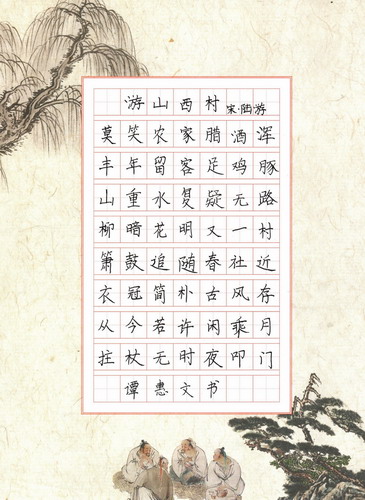 游山西村 宋·陆游
莫笑农家腊酒浑
丰年留客足鸡豚
山重水复疑无路
柳暗花明又一村
箫鼓追随春社近
衣冠简朴古风存
从今若许闲乘月
拄杖无时夜叩门
谭惠文书